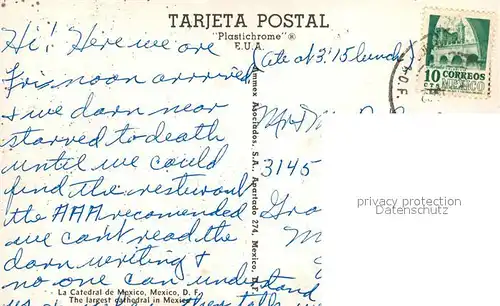 TARJETA POSTAL
"Plastichrome"®
E.U.A.
Hi! Here we are
(Ate at 3:15 lunch)
noon arrived
& we darn near
starved to death
until we could
find the resturant
the AAA recomended
we cant read the
darn writing &
no one can understand
us
tells
3145
Ammex Asociados, S.A., Apartado 274, Mexico, D.F.
La Catedral de Mexico, Mexico, D. F.
The largest cathedral in Mexico
10 CORREOS
CTS MEXICO
D.F.
privacy protection
Datenschutz